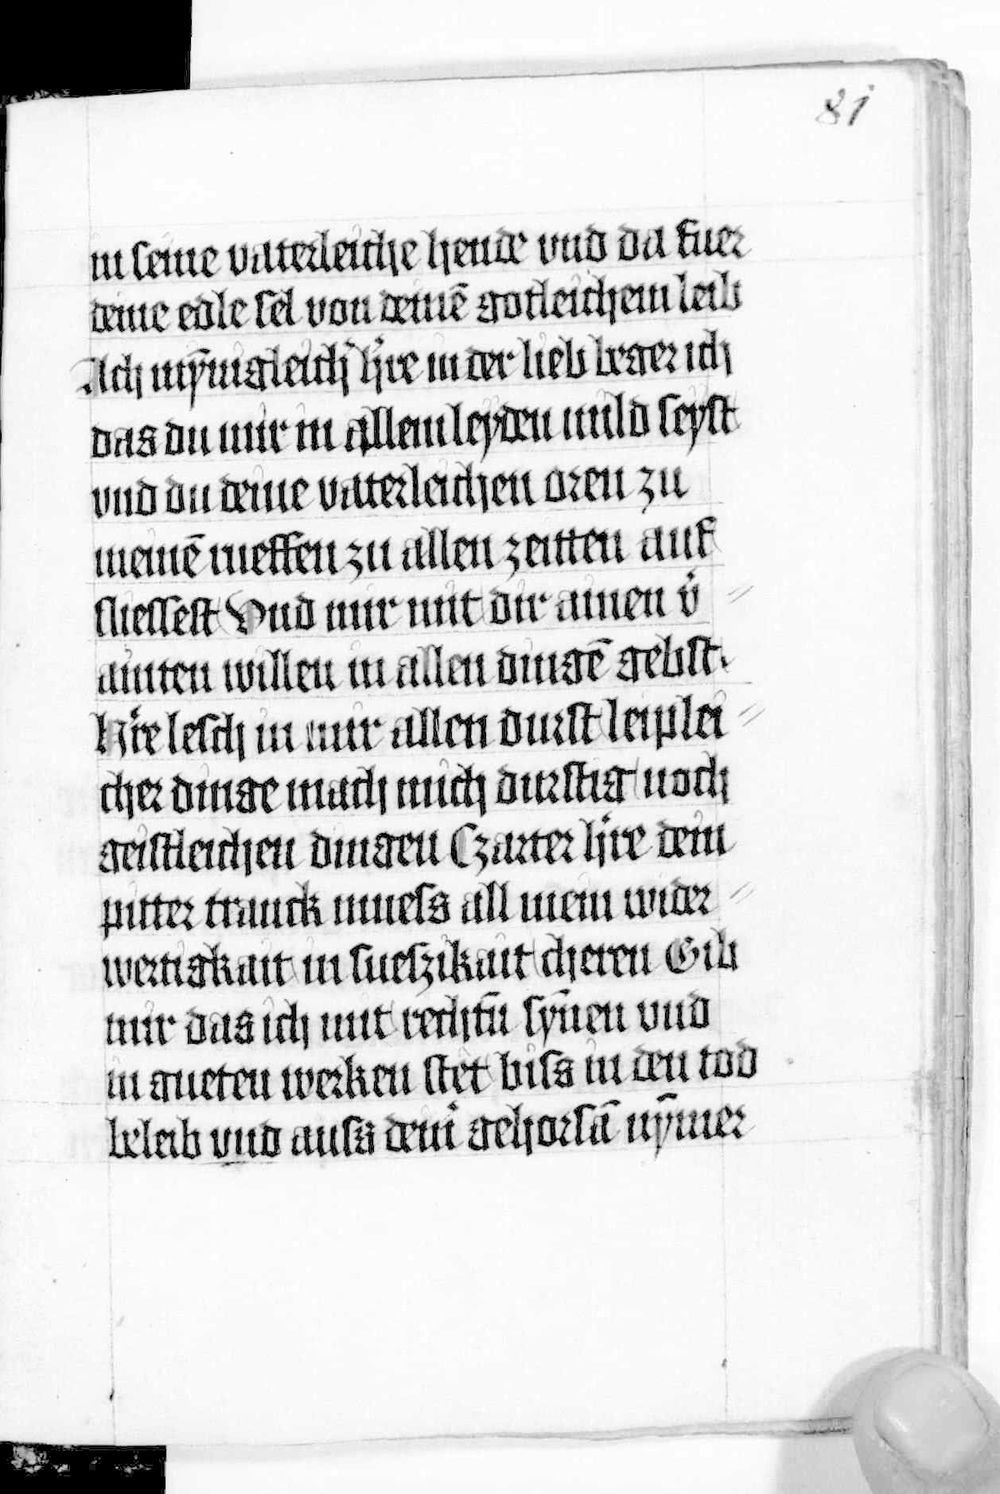 81
in seine vaterleiche hende vnd da fuer
deine edle sel von deinē gotleichem leib
Ach mȳnigleichʼ hʼre in der lieb beger ich
das du mir in allem leyden mild seyst
vnd du deine vaterleichen oren zu
meinē rueffen zu allen zeitten auf
sliessest Vnd mir mit dir ainen vʼ
ainten willen in allen dingē gebst.
Hʼre lesch in mir allen durst leiplei
cher dinge mach mich durstig noch
geistleichen dingen Czarter hʼre dein
pitter tranck muess all mein wider
wertigkait in sueszikait cheren Gib
mir das ich mit rechtn̄ syn̄en vnd
in gueten werken stet biss in den tod
beleib vnd auss deinʼ gehorsā nȳmer